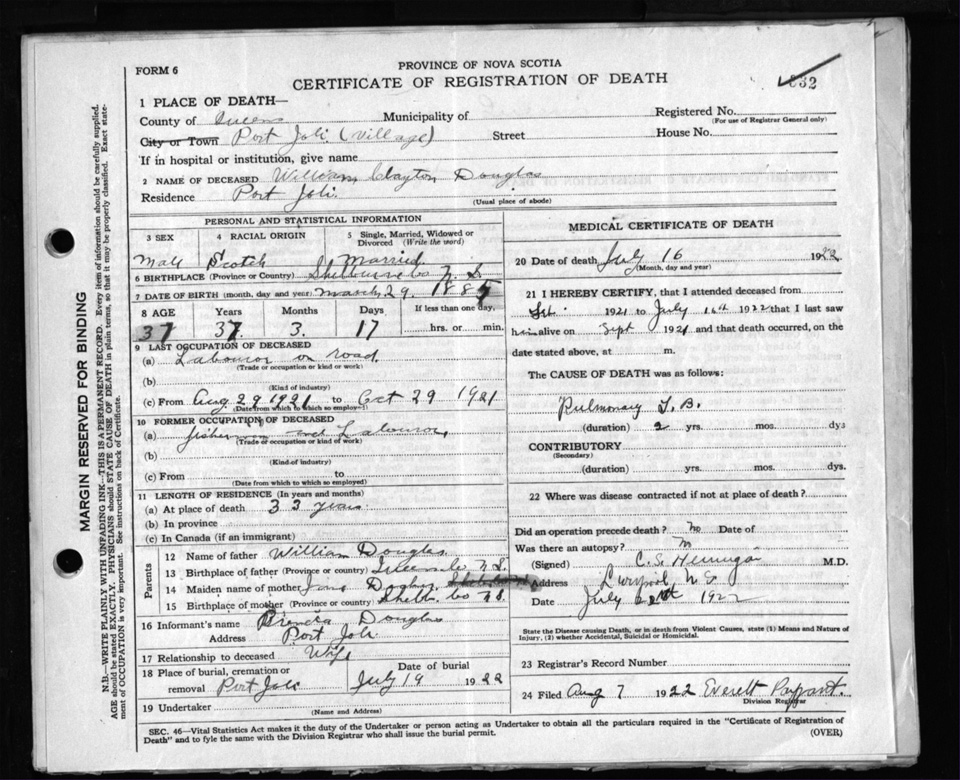 FORM 6
PROVINCE OF NOVA SCOTIA
CERTIFICATE OF REGISTRATION OF DEATH
832
1 PLACE OF DEATH—
County of Queens Municipality of Registered No.
(For use of Registrar General only)
City or Town Port Joli (Village) Street House No.
If in hospital or institution, give name
2 NAME OF DECEASED William Clayton Douglas
Residence Port Joli.
(Usual place of abode)
PERSONAL AND STATISTICAL INFORMATION
3 SEX 4 RACIAL ORIGIN 5 Single, Married, Widowed or Divorced (Write the word)
Male Scotch Married
6 BIRTHPLACE (Province or Country) Shelburne Co N. S
7 DATE OF BIRTH (month, day and year) March 29. 1885
8 AGE Years Months Days If less than one day,
37 37. 3. 17 hrs. or min.
9 LAST OCCUPATION OF DECEASED
(a) Labouror on road
(Trade or occupation or kind of work)
(b)
(Kind of industry)
(c) From Aug 29 1921 to Oct 29 1921
(Date from which to which so employ
10 FORMER OCCUPATION OF DECEASED
(a) fisherman and Labouror,
(Trade or occupation or kind of work)
(b)
(Kind of industry)
(c) From to
(Date from which to which so employed)
11 LENGTH OF RESIDENCE (In years and months)
(a) At place of death 33 years.
(b) In province
(c) In Canada (if an immigrant)
Parents
12 Name of father William Douglas
13 Birthplace of father (Province or country) N.S.
14 Maiden name of mother
15 Birthplace of mother (Province or country) Shelb. Co N.S.
16 Informant's name Douglas
Address Port Joli
17 Relationship to deceased Wife
18 Place of burial, cremation or removal Port Joli Date of burial July 19 1922
19 Undertaker
(Name and Address)
MEDICAL CERTIFICATE OF DEATH
20 Date of death July 16 1922
(Month, day and year)
21 I HEREBY CERTIFY, that I attended deceased from
1921 to July 16th 1922 that I last saw
him alive on Sept 1921 and that death occurred, on the
date stated above, at m.
The CAUSE OF DEATH was as follows:
Pulmonary T.B.
(duration) 2 yrs. mos. dys
CONTRIBUTORY
(Secondary)
(duration) yrs. mos. dys.
22 Where was disease contracted if not at place of death?
Did an operation precede death? no Date of
Was there an autopsy?
(Signed) C.S. M.D.
Address Liverpool, N.S
Date July 1922
State the Disease causing Death, or in death from Violent Causes, state (1) Means and Nature of Injury, (2) whether Accidental, Suicidal or Homicidal.
23 Registrar's Record Number
24 Filed Aug 7 1922 Everett Payzant.
Division Registrar
SEC. 46—Vital Statistics Act makes it the duty of the Undertaker or person acting as Undertaker to obtain all the particulars required in the "Certificate of Registration of
Death" and to fyle the same with the Division Registrar who shall issue the burial permit.
(OVER)
MARGIN RESERVED FOR BINDING
N.B.—WRITE PLAINLY WITH UNFADING INK—THIS IS A PERMANENT RECORD. Every item of information should be carefully supplied.
AGE should be stated EXACTLY. PHYSICIANS should STATE CAUSE OF DEATH in plain terms, so that it may be properly classified. Exact statement
of OCCUPATION is very important. See instructions on back of Certificate.